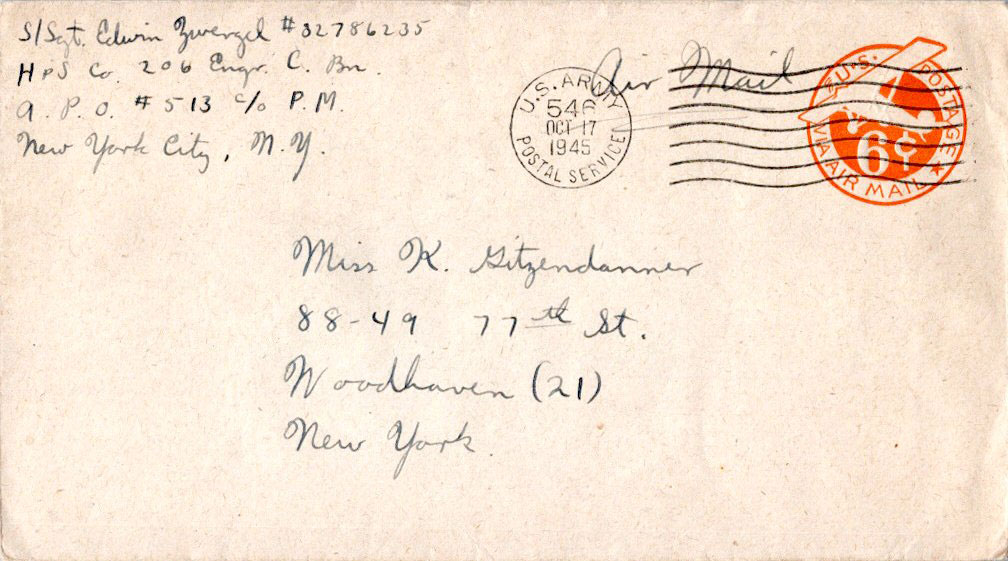 S/Sgt. Edwin Zwengel #32786235
H & S Co. 206 Engr. C. Bn.
A. P. O. #513 c/o P. M.
New York City, N. Y.
Air Mail
U.S. ARMY
546
OCT 17
1945
POSTAL SERVICE
U.S. POSTAGE
6¢
VIA AIR MAIL
Miss K. Gitzendanner
88-49 77th St.
Woodhaven (21)
New York